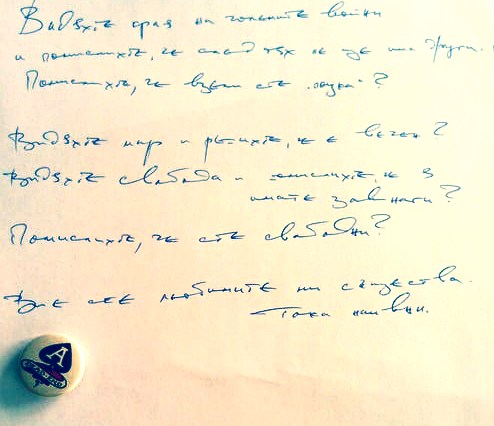 Видяхте края на големите войни
и помислихте, че след тях не ще има други.
Помислихте, че взели сте „поука“?
Видяхте мир и решихте, че е вечен?
Видяхте свобода и помислихте, че я
имате завинаги?
Помислихте, че сте свободни?
Вие сте любимите ни същества.
Тока наивни.
A